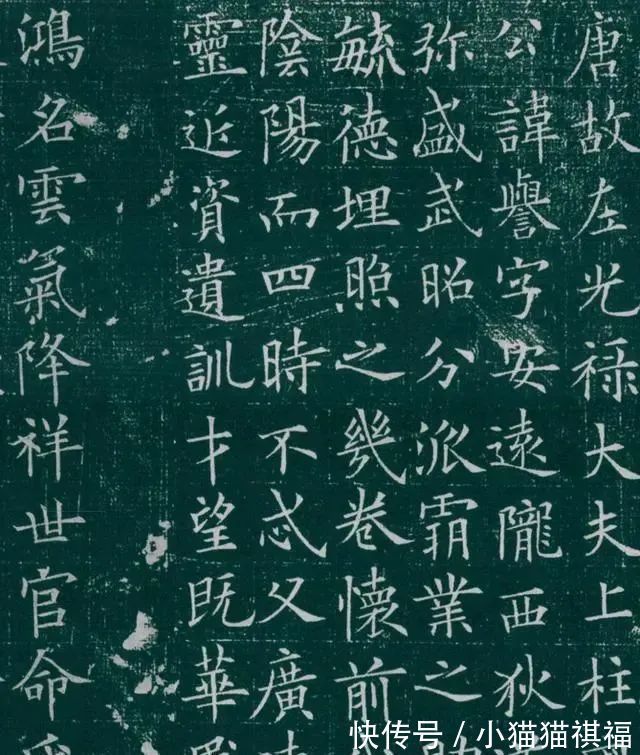 唐故左光禄大夫上柱
公諱譽字安遠隴西狄
弥盛武昭分派霸業之
毓德埋照之幾卷懷前
陰陽而四時不忒父廣
靈近資遺訓才望既華
鴻名雲氣降祥世官命
快传号 / 小猫猫祺福